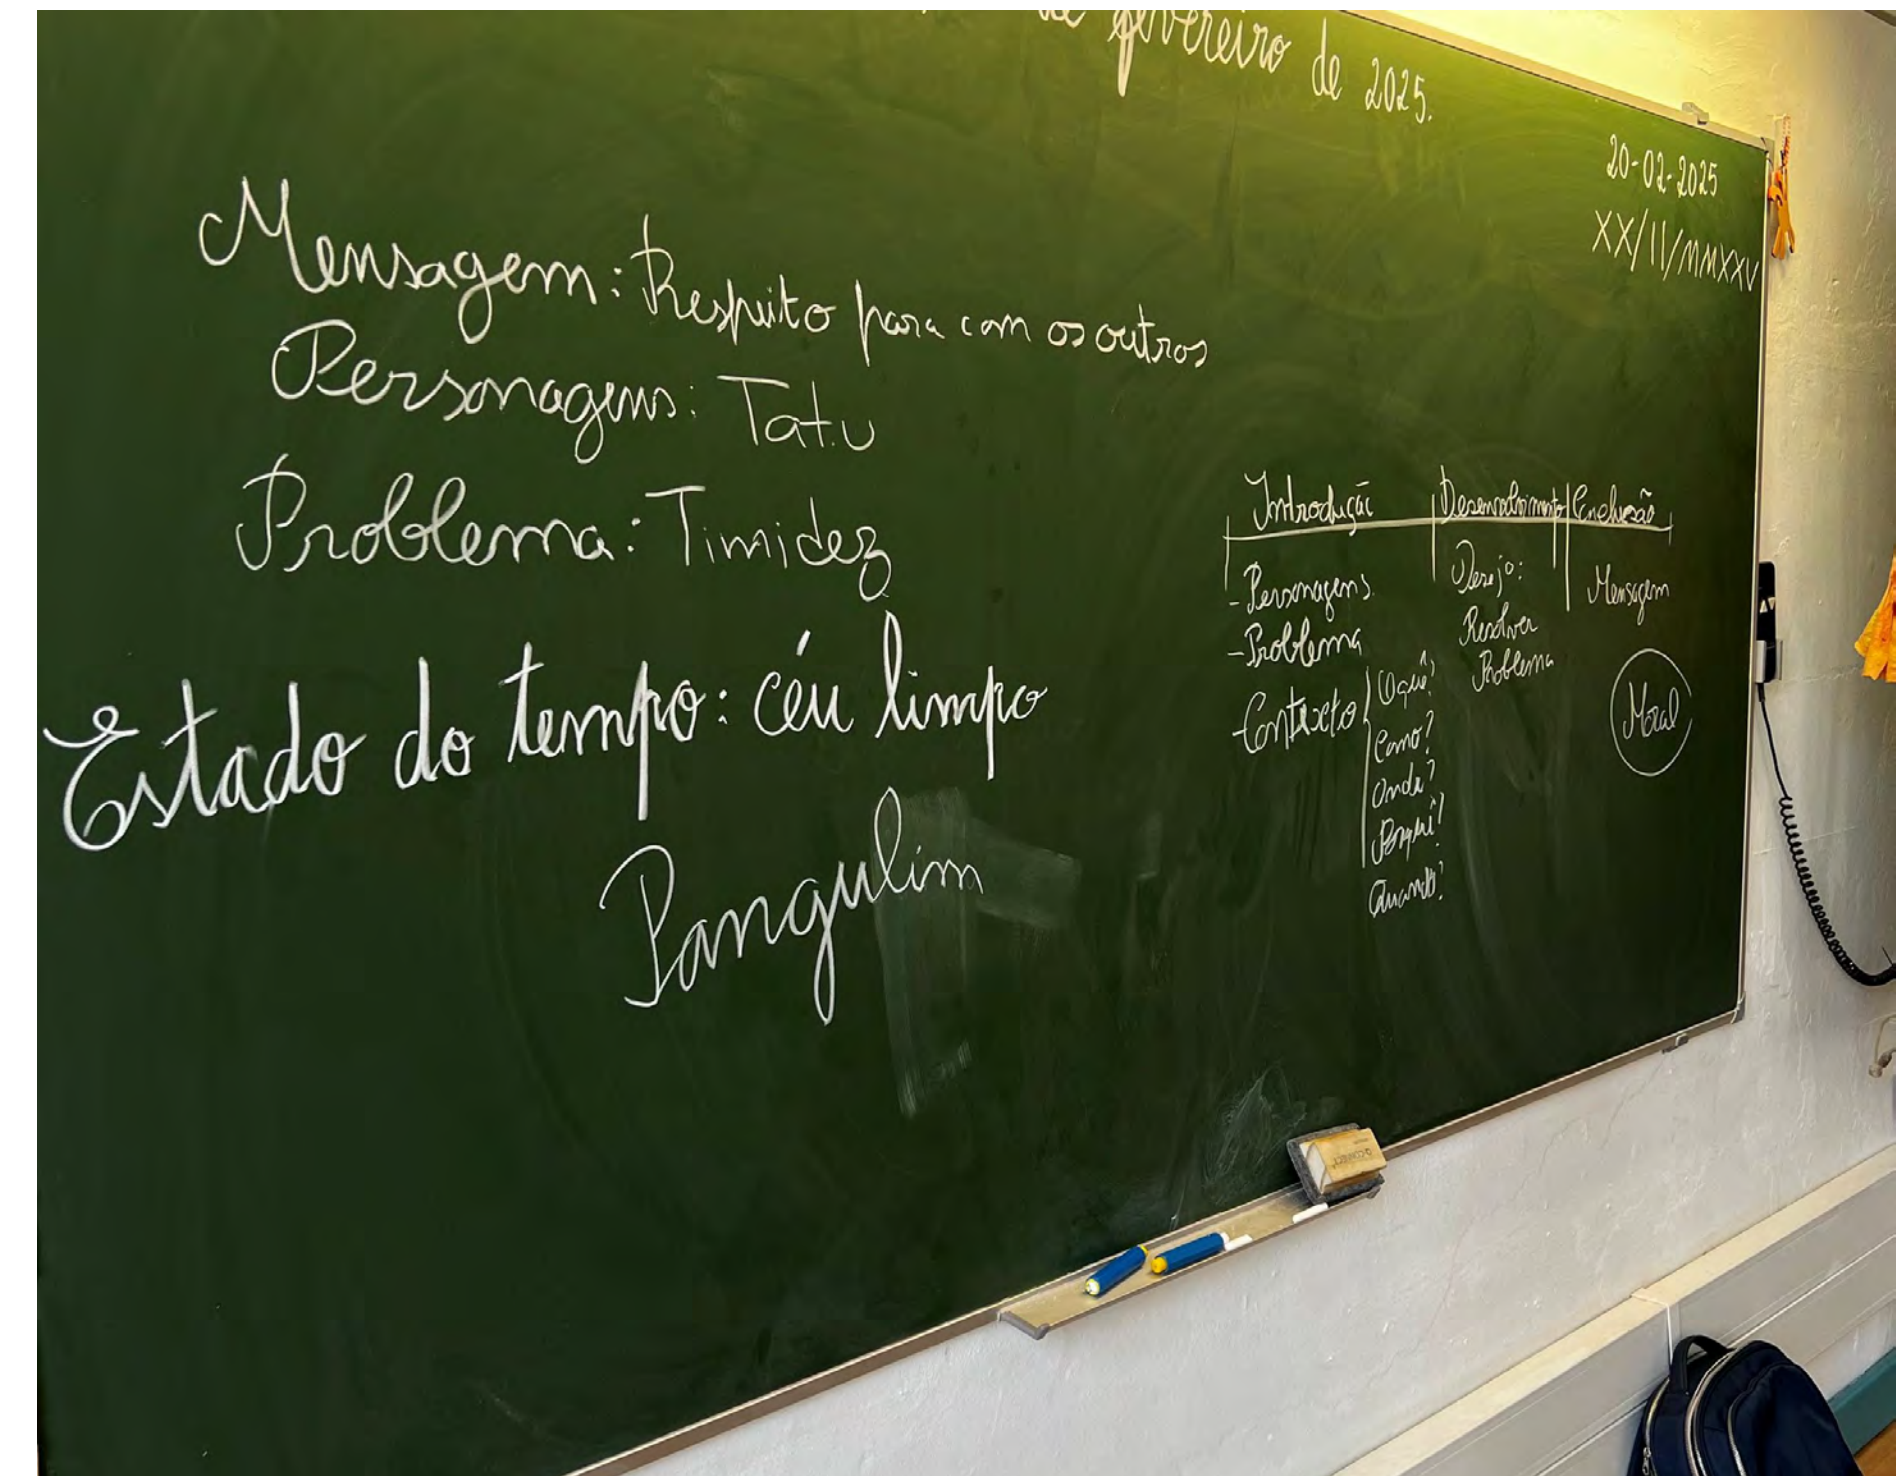 de fevereiro de 2025.
20-02-2025
XX/II/MMXXV
Mensagem: Respeito para com os outros
Personagens: Tatu
Problema: Timidez
Estado do tempo: céu limpo
Pangulim
Introdução Desenvolvimento Conclusão
- Personagens
- Problema
- Contexto
O quê?
Como?
Onde?
Porquê?
Quando?
Desejo:
Resolver
Problema
Mensagem
Moral